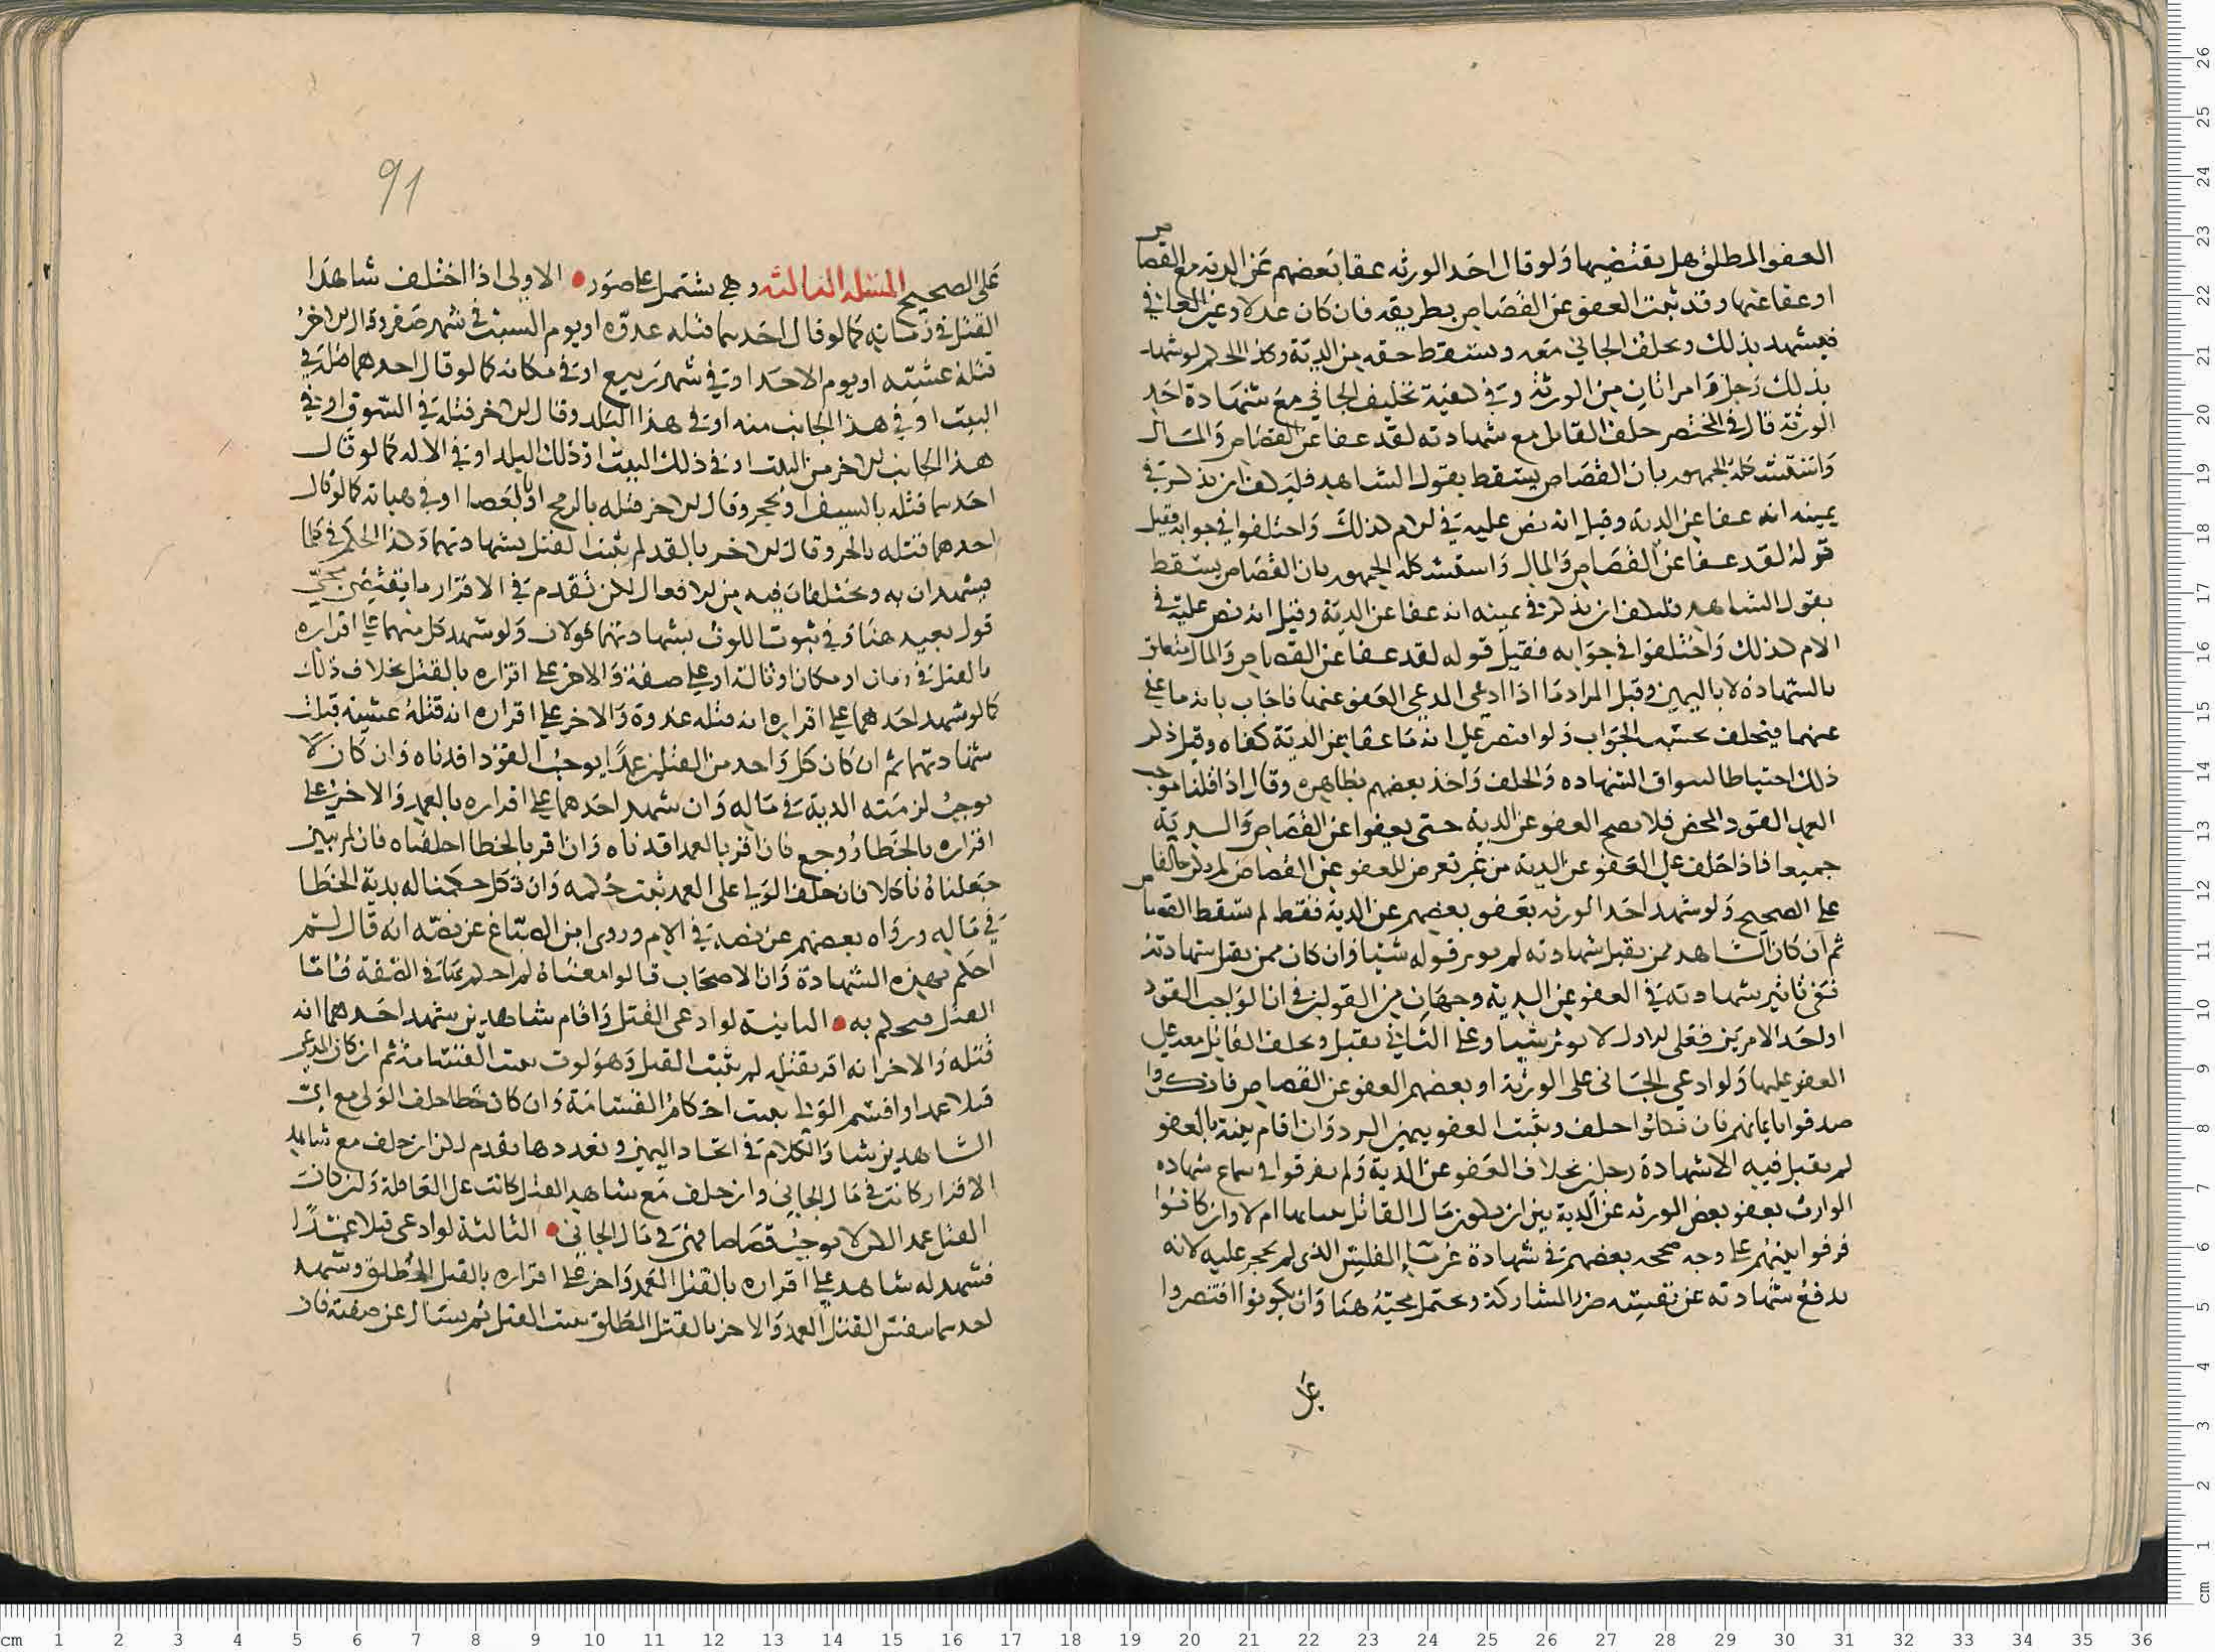 العفو المطلق هل يقتضيها ولو قال احد الورثه عفا بعضهم عن الديه مع القصاص
او عفا عنها وقد ثبت العفو عن القصاص بطريقه فان كان عدلا وعين العافي
فيشهد بذلك ويحلف الجاني معه ويسقط حقه من الدية وكذا الحكم لو شهد
بذلك رجل وامراتان من الورثة وفي كيفية تحليف الجاني مع شهادة احد
الورثة قال في المختصر حلف القاتل مع شهادته لقد عفا عن القصاص والمال
واستشكله الجمهور بان القصاص يسقط بقول الشاهد فليكف ان يذكر في
يمينه انه عفا عن الدية وقيل انه نص عليه في الام كذلك واختلفوا في جوابه فقيل
قوله لقد عفا عن القصاص والمال واستشكله الجمهور بان القصاص يسقط
بقول الشاهد فليكف ان يذكر في يمينه انه عفا عن الدية وقيل انه نص عليه في
الام كذلك واختلفوا في جوابه فقيل قوله لقد عفا عن القصاص والمال متعلق
بالشهادة لا باليمين وقيل المراد ما اذا ادعى المدعي العفو عنهما فاجاب بانه ما عفى
عنهما فيحلف بحسب الجواب ولو اقتصر على انه ما عفا عن الدية كفاه وقيل ذكر
ذلك احتياطا لسواق الشهاده والحلف واخذ بعضهم بظاهره وقال اذا قلنا موجب
العمد القود المحض فلا يصح العفو عن الدية حتى يعفوا عن القصاص والدية
جميعا فاذا حلف على العفو عن الدية من غير تعرض للعفو عن القصاص لم يكن حالفا
على الصحيح ولو شهد احد الورثه بعفو بعضهم عن الدية فقط لم يسقط القصاص
ثم ان كان الشاهد ممن يقبل شهادته لم يوثر قوله شيا وان كان ممن يقبل شهادته
ففي تاثير شهادته في العفو عن الدية وجهان من القولين في ان الواجب القود
او احد الامرين فعلى الاول لا يوثر شيا وعلى الثاني يقبل ويحلف القاتل معه على
العفو عليها ولو ادعى الجاني على الورثة او بعضهم العفو عن القصاص فانكروا
صدقوا بايمانهم فان نكلوا حلف ويثبت العفو بيمين الرد وان اقام بينة بالعفو
لم يقبل فيه الا شهادة رجلين بخلاف العفو عن الدية ولم يفرقوا في سماع شهاده
الوارث بعفو بعض الورثه عن الدية بين ان يكون مال القاتل ام لا وان كانوا
فرقوا بينهم على وجه صححه بعضهم في شهادة غرماء المفلس الذي لم يحجر عليه لانه
يدفع شهادته عن نفسه ضرر المشاركة ويحتمل مجيئه هنا وان يكونوا اقتصروا
على
91
على الصحيح المسئلة الثالثه وهي يشتمل على صور الاولى اذا اختلف شاهدا
القتل في زمانه كما لو قال احدهما قتله غدوه او يوم السبت في شهر صفر وقال الاخر
قتله عشيه او يوم الاحد او في شهر ربيع او في مكانه كما لو قال احدهما قتله في
البيت او في هذا الجانب منه او في هذا البلد وقال الاخر قتله في السوق او في
هذا الجانب الاخر من البيت او في ذلك البيت او ذلك البلد او في الاله كما لو قال
احدهما قتله بالسيف او بحجر وقال الاخر قتله بالرمح او بالعصا او في هياته كما لو قال
احدهما قتله بالحز وقال الاخر بالقد لم يثبت القتل بشهادتهما وكذا الحكم في كلما
يشهدان به ويختلفان فيه من الافعال لكن تقدم في الاقرار ما يقتضي مجي
قول بعيد هنا وفي ثبوت اللوث بشهادتهما قولان ولو شهد كل منهما على اقراره
بالقتل في زمان او مكان او ثالة او على صفة والاخر على اقراره بالقتل بخلاف ذلك
كما لو شهد احدهما على اقراره انه قتله غدوة والاخر على اقراره انه قتله عشية قبلت
شهادتهما ثم ان كان كل واحد من القتلين عمدا يوجب القود اقدناه وان كان لا
يوجب لزمته الدية في ماله وان شهد احدهما على اقراره بالعمد والاخر على
اقراره بالخطا روجع فان اقر بالعمد اقدناه وان اقر بالخطا احلفناه فان لم يبين
جعلناه ناكلا فان حلف الولي على العمد ثبت حكمه وان نكل حكمنا له بدية الخطا
في ماله ورواه بعضهم عن نصه في الام وروى ابن الصباغ عن نصه انه قال لم
احكم بهذه الشهادة وان الاصحاب قالوا معناه لم احكم بهما في الصفة فاما
القتل فيحكم به الثانية لو ادعى القتل واقام شاهدين شهد احدهما انه
قتله والاخر انه اقر بقتله لم يثبت القتل وهو لوث يثبت القسامة ثم ان كان المدعي
قتلا عمدا واقسم الولي يثبت احكام القسامة وان كان خطا حلف الولي مع اي
الشاهدين شا والكلام في اتحاد اليمين وتعددها تقدم لكن ان حلف مع شاهد
الاقرار كانت في مال الجاني وان حلف مع شاهد القتل كانت على العاقلة ولئن كان
القتل عمدا لكن لا يوجب قصاصا فهي في مال الجاني الثالثة لو ادعى قتلا عمدا
فشهد له شاهد على اقراره بالقتل العمد واخر على اقراره بالقتل المطلق وشهد
احدهما بنفس القتل العمد والاخر بالقتل المطلق يثبت القتل ثم يسال عن صفته فان